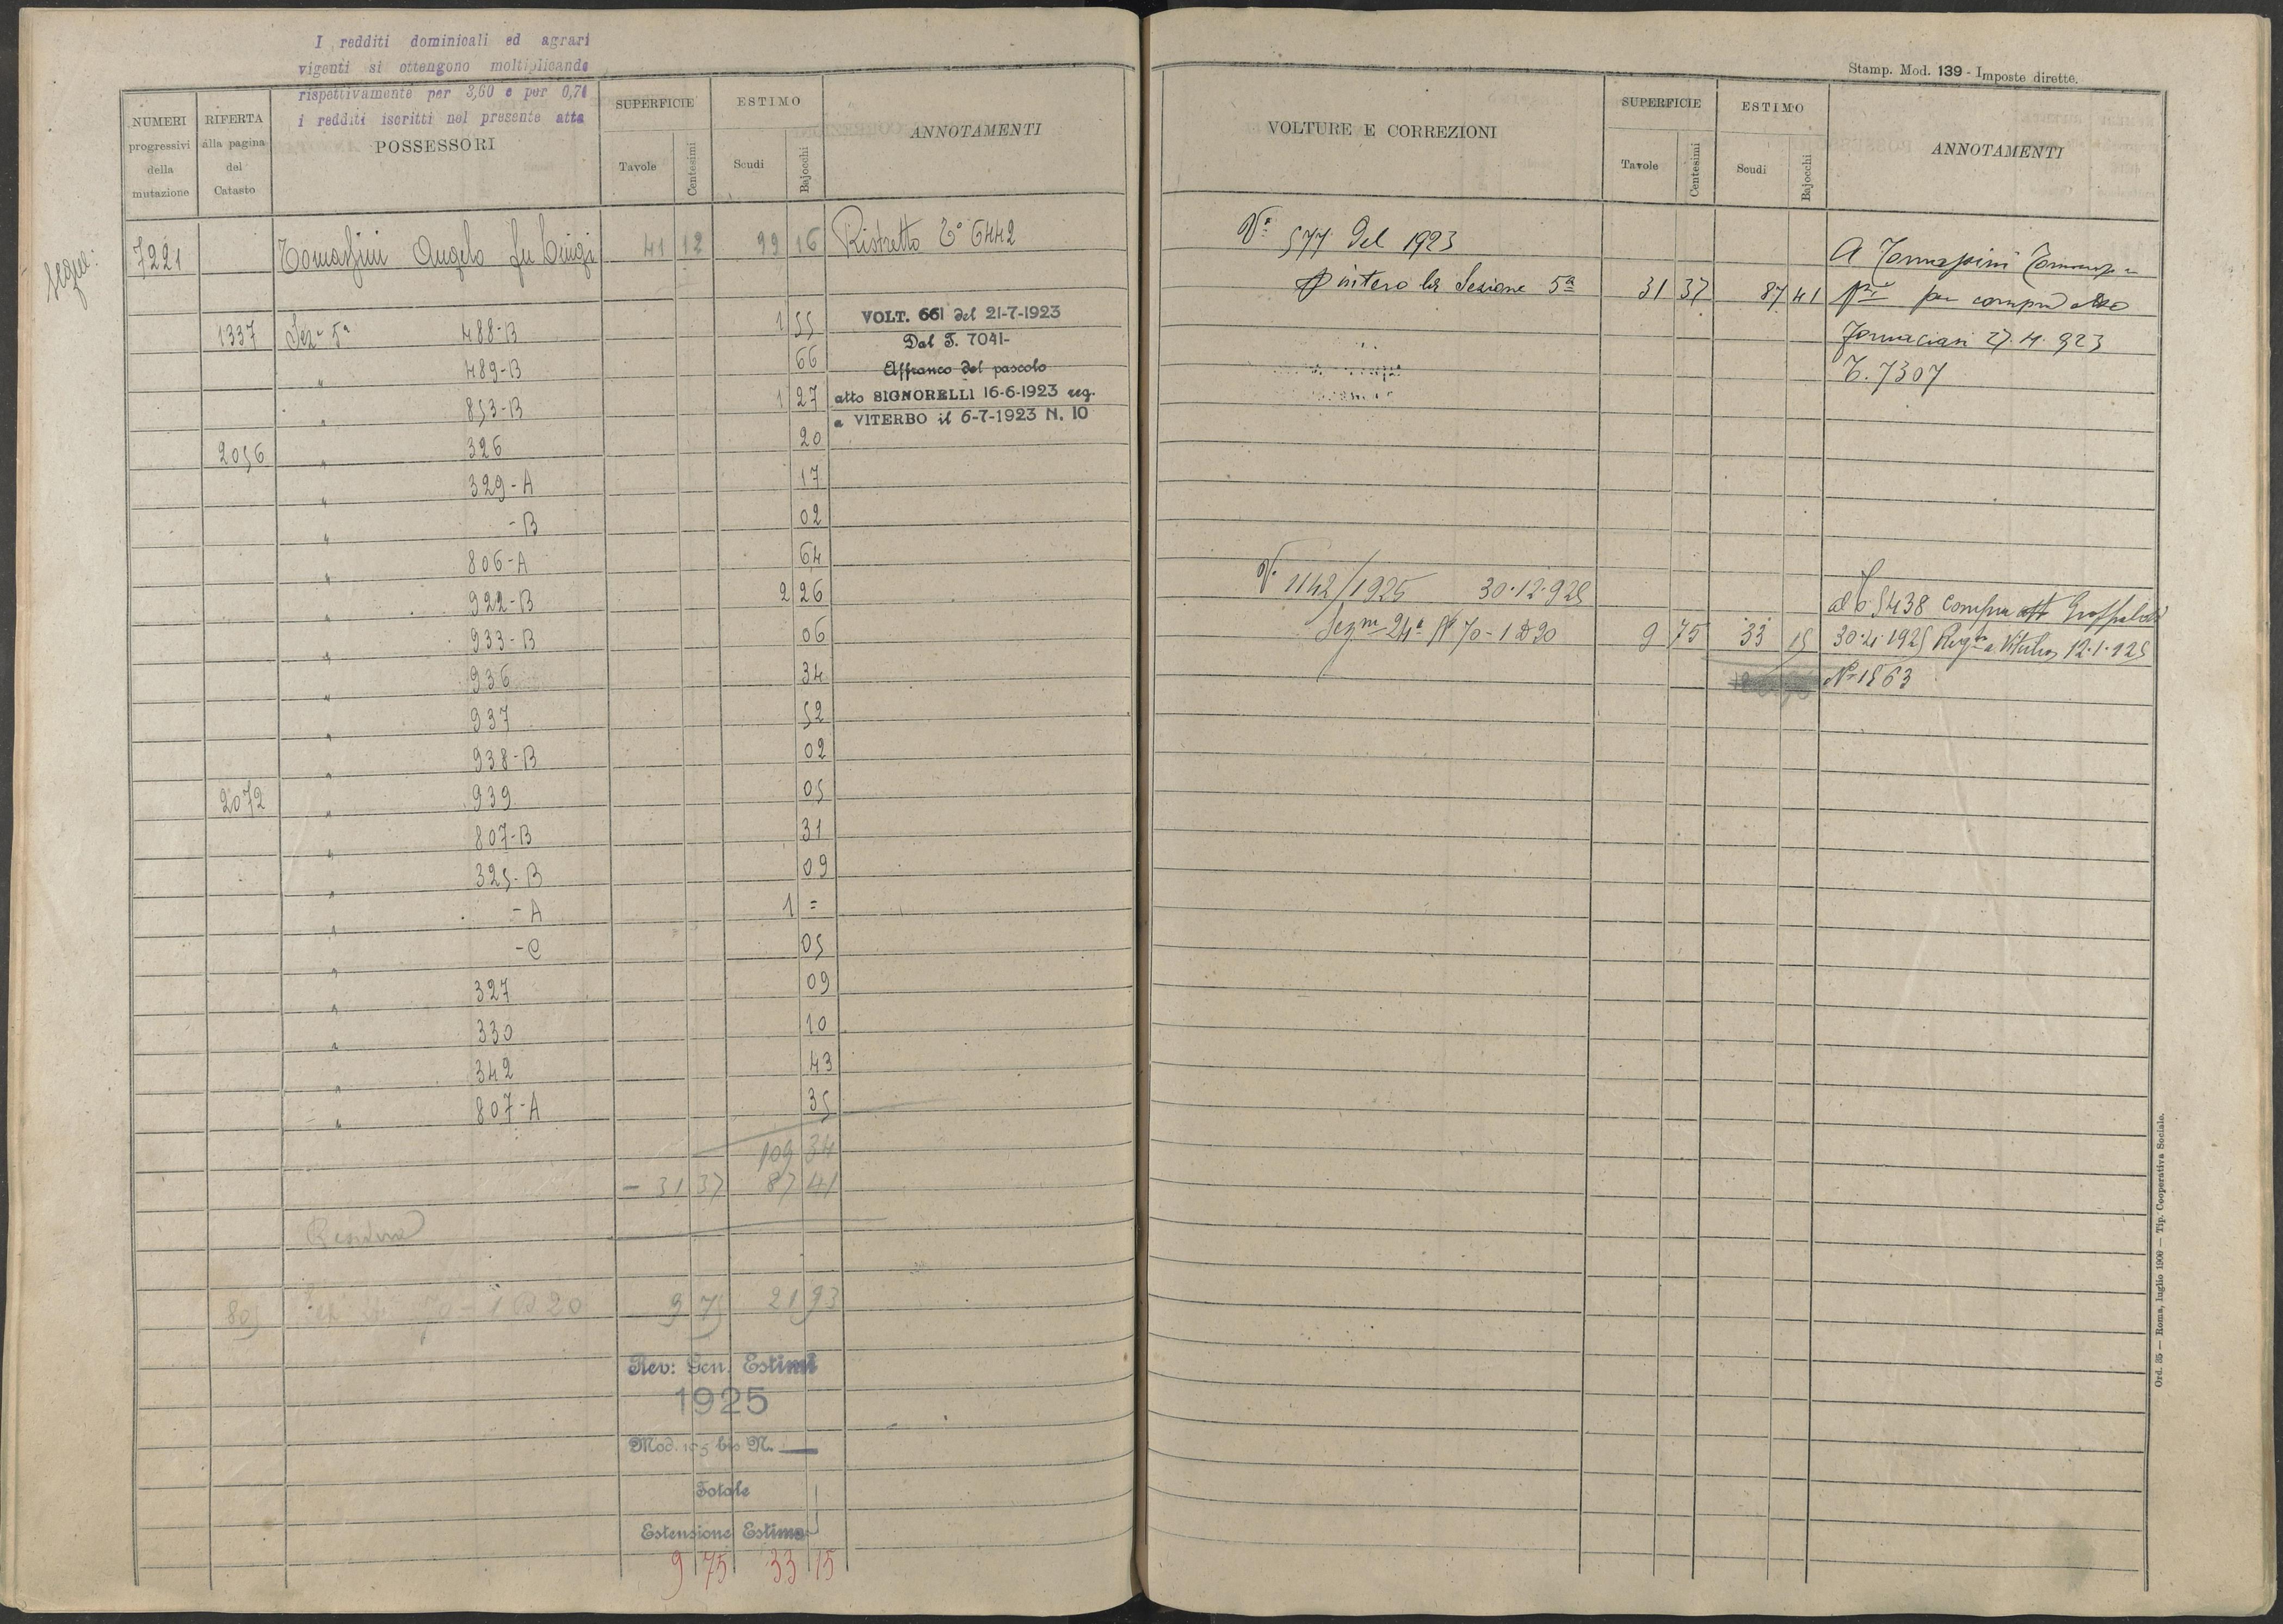 I redditi dominicali ed agrari
vigenti si ottengono moltiplicando
rispettivamente per 3,60 e per 0,71
i redditi iscritti nel presente atto
NUMERI progressivi della mutazione
RIFERTA alla pagina del Catasto
POSSESSORI
SUPERFICIE
Tavole Centesimi
ESTIMO
Scudi Bajocchi
ANNOTAMENTI
segue:
7221 Tomassini Angelo fu Luigi 41 12 99 16 Ristretto T° 6442
1337 Sez. 5ª 488-B 1 55
VOLT. 661 del 21-7-1923
Dal T. 7041-
" 489-B 66
Affranco del pascolo
" 853-B 1 27
atto SIGNORELLI 16-6-1923 reg.
a VITERBO il 6-7-1923 N. 10
2056 " 326 20
" 329-A 17
" -B 02
" 806-A 64
" 922-B 2 26
" 933-B 06
" 936 34
" 937 52
" 938-B 02
2072 " 939 05
" 807-B 31
" 325-B 09
" -A 1 =
" -C 05
" 327 09
" 330 10
" 342 43
" 807-A 35
109 34
- 31 37 87 41
805 70-1 D 20 9 75 21 93
Rev: Gen. Estimi
1925
Mod. 105 bis N.
Totale
Estensione Estimo
9 75 33 15
Stamp. Mod. 139 - Imposte dirette.
VOLTURE E CORREZIONI
SUPERFICIE
Tavole Centesimi
ESTIMO
Scudi Bajocchi
ANNOTAMENTI
Vª 577 del 1923
intero la Sezione 5ª 31 37 87 41
A Tomassini
per compra atto
Fornaciari 27.4.923
T. 7307
V. 1142/1925 30.12.925
Sezne 24ª N 70-1 D 20 9 75 33 15
al T 5438 compra atto
30.21.1925 Regto a Viterbo 12.1.125
N. 1563
Ord. 35 — Roma, luglio 1900 — Tip. Cooperativa Sociale.